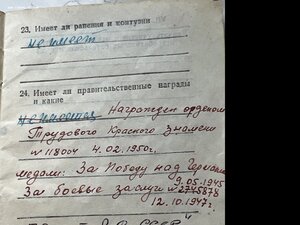 23. Имеет ли ранения и контузии
не имеет
24. Имеет ли правительственные награды
и какие
не имеет Награжден орденом
Трудового Красного знамени
№ 118004 4.02.1950г.
медали: За Победу над Германи
9.05.1945
За боевые заслуги № 2745878
12.10.1947г.